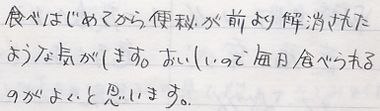 食べはじめてから便秘が前より解消された
ような気がします。おいしいので毎日食べられる
のがよいと思います。